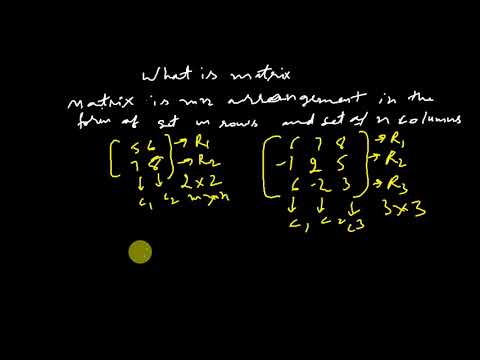 What is matrix
Matrix is mn arrangement in the
form of set m rows and set of n columns
[ 5 6 ] → R1
[ 7 8 ] → R2
↓ ↓ 2 x 2
c1 c2 m x n
[ 6 7 8 ] → R1
[ -1 2 5 ] → R2
[ 6 -2 3 ] → R3
↓ ↓ ↓ 3 x 3
c1 c2 c3